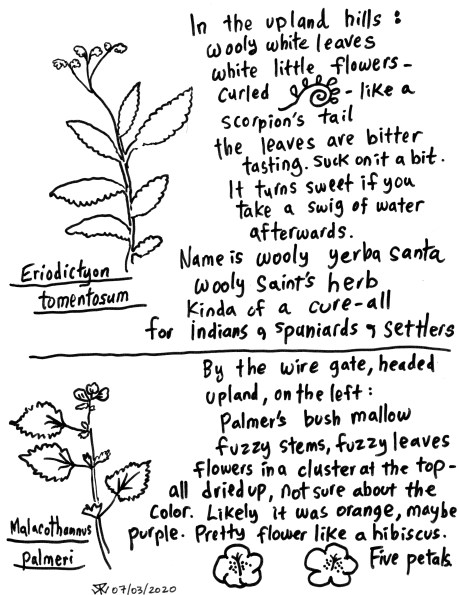 In the upland hills:
wooly white leaves
white little flowers -
curled - like a
scorpion's tail
the leaves are bitter
tasting. Suck on it a bit.
It turns sweet if you
take a swig of water
afterwards.
Name is wooly yerba santa
wooly Saint's herb
Kinda of a cure-all
for Indians & Spaniards & Settlers
Eriodictyon
tomentosum
By the wire gate, headed
upland, on the left:
Palmer's bush mallow
fuzzy stems, fuzzy leaves
flowers in a cluster at the top -
all dried up, not sure about the
color. Likely it was orange, maybe
purple. Pretty flower like a hibiscus.
Five petals.
Malacothamnus
palmeri
07/03/2020